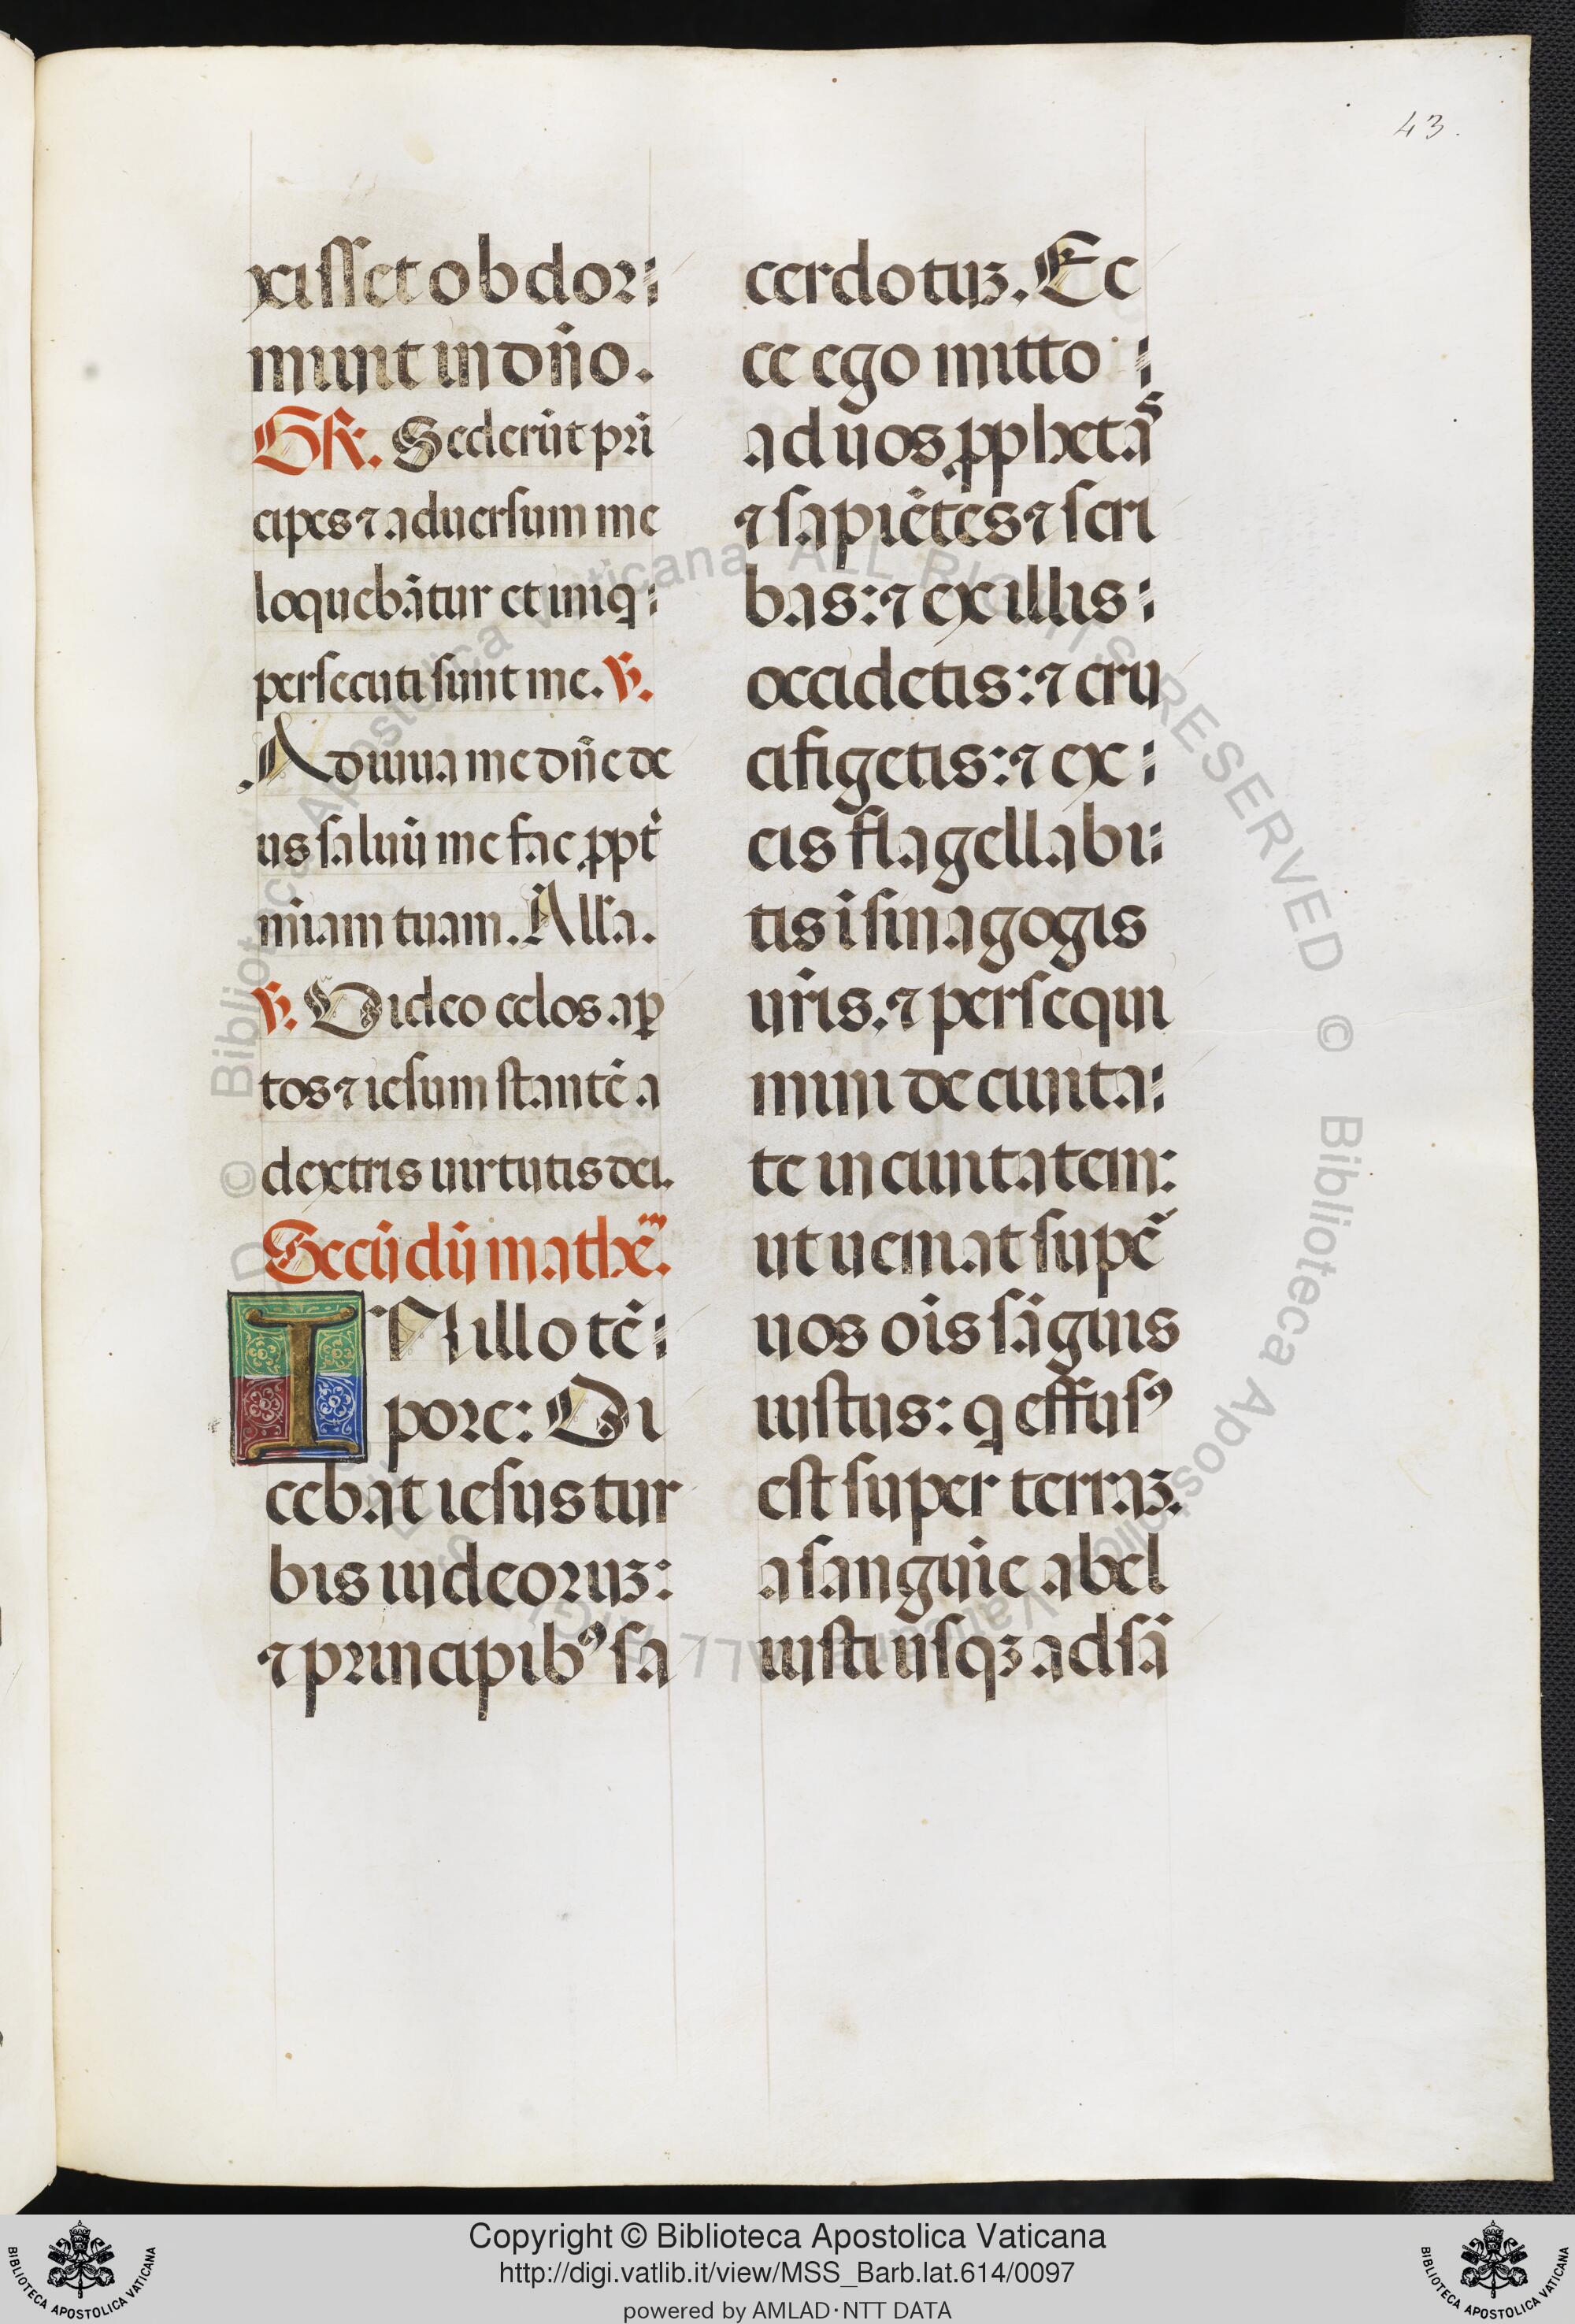 43.
xisset obdor:
munt in dñо.
GR. Sederūt pri
cipes ⁊ aduersum me
loquebātur et iniq:
persecuti sunt me. ℣.
Adiuua me dñe de
us saluū me fac ꝓpt̉
m̄iam tuam. All̄a.
℣. Video celos aꝑ
tos ⁊ iesum stantē a
dextris uirtutis dei.
Secūdū mathē.
IN illo tē:
pore: Di
cebat iesus tur
bis iudeoruꝫ:
⁊ principibꝰ sa
cerdotuꝫ. Ec
ce ego mitto :
ad uos ꝓphetas
⁊ sapiētes ⁊ scri
bas: ⁊ ex illis :
occidetis: ⁊ cru
cifigetis: ⁊ ex :
eis flagellabi:
tis ī sinagogis
ur̄is. ⁊ persequi
mini de ciuita:
te in ciuitatem:
ut ueniat supẽ
uos oīs sāguis
iustus: q effusꝰ
est super terraꝫ.
a sanguīe abel
iusti usqꝫ ad sā
© Biblioteca Apostolica Vaticana ALL RIGHTS RESERVED
Copyright © Biblioteca Apostolica Vaticana
http://digi.vatlib.it/view/MSS_Barb.lat.614/0097
powered by AMLAD·NTT DATA
BIBLIOTECA APOSTOLICA VATICANA
BIBLIOTECA APOSTOLICA VATICANA